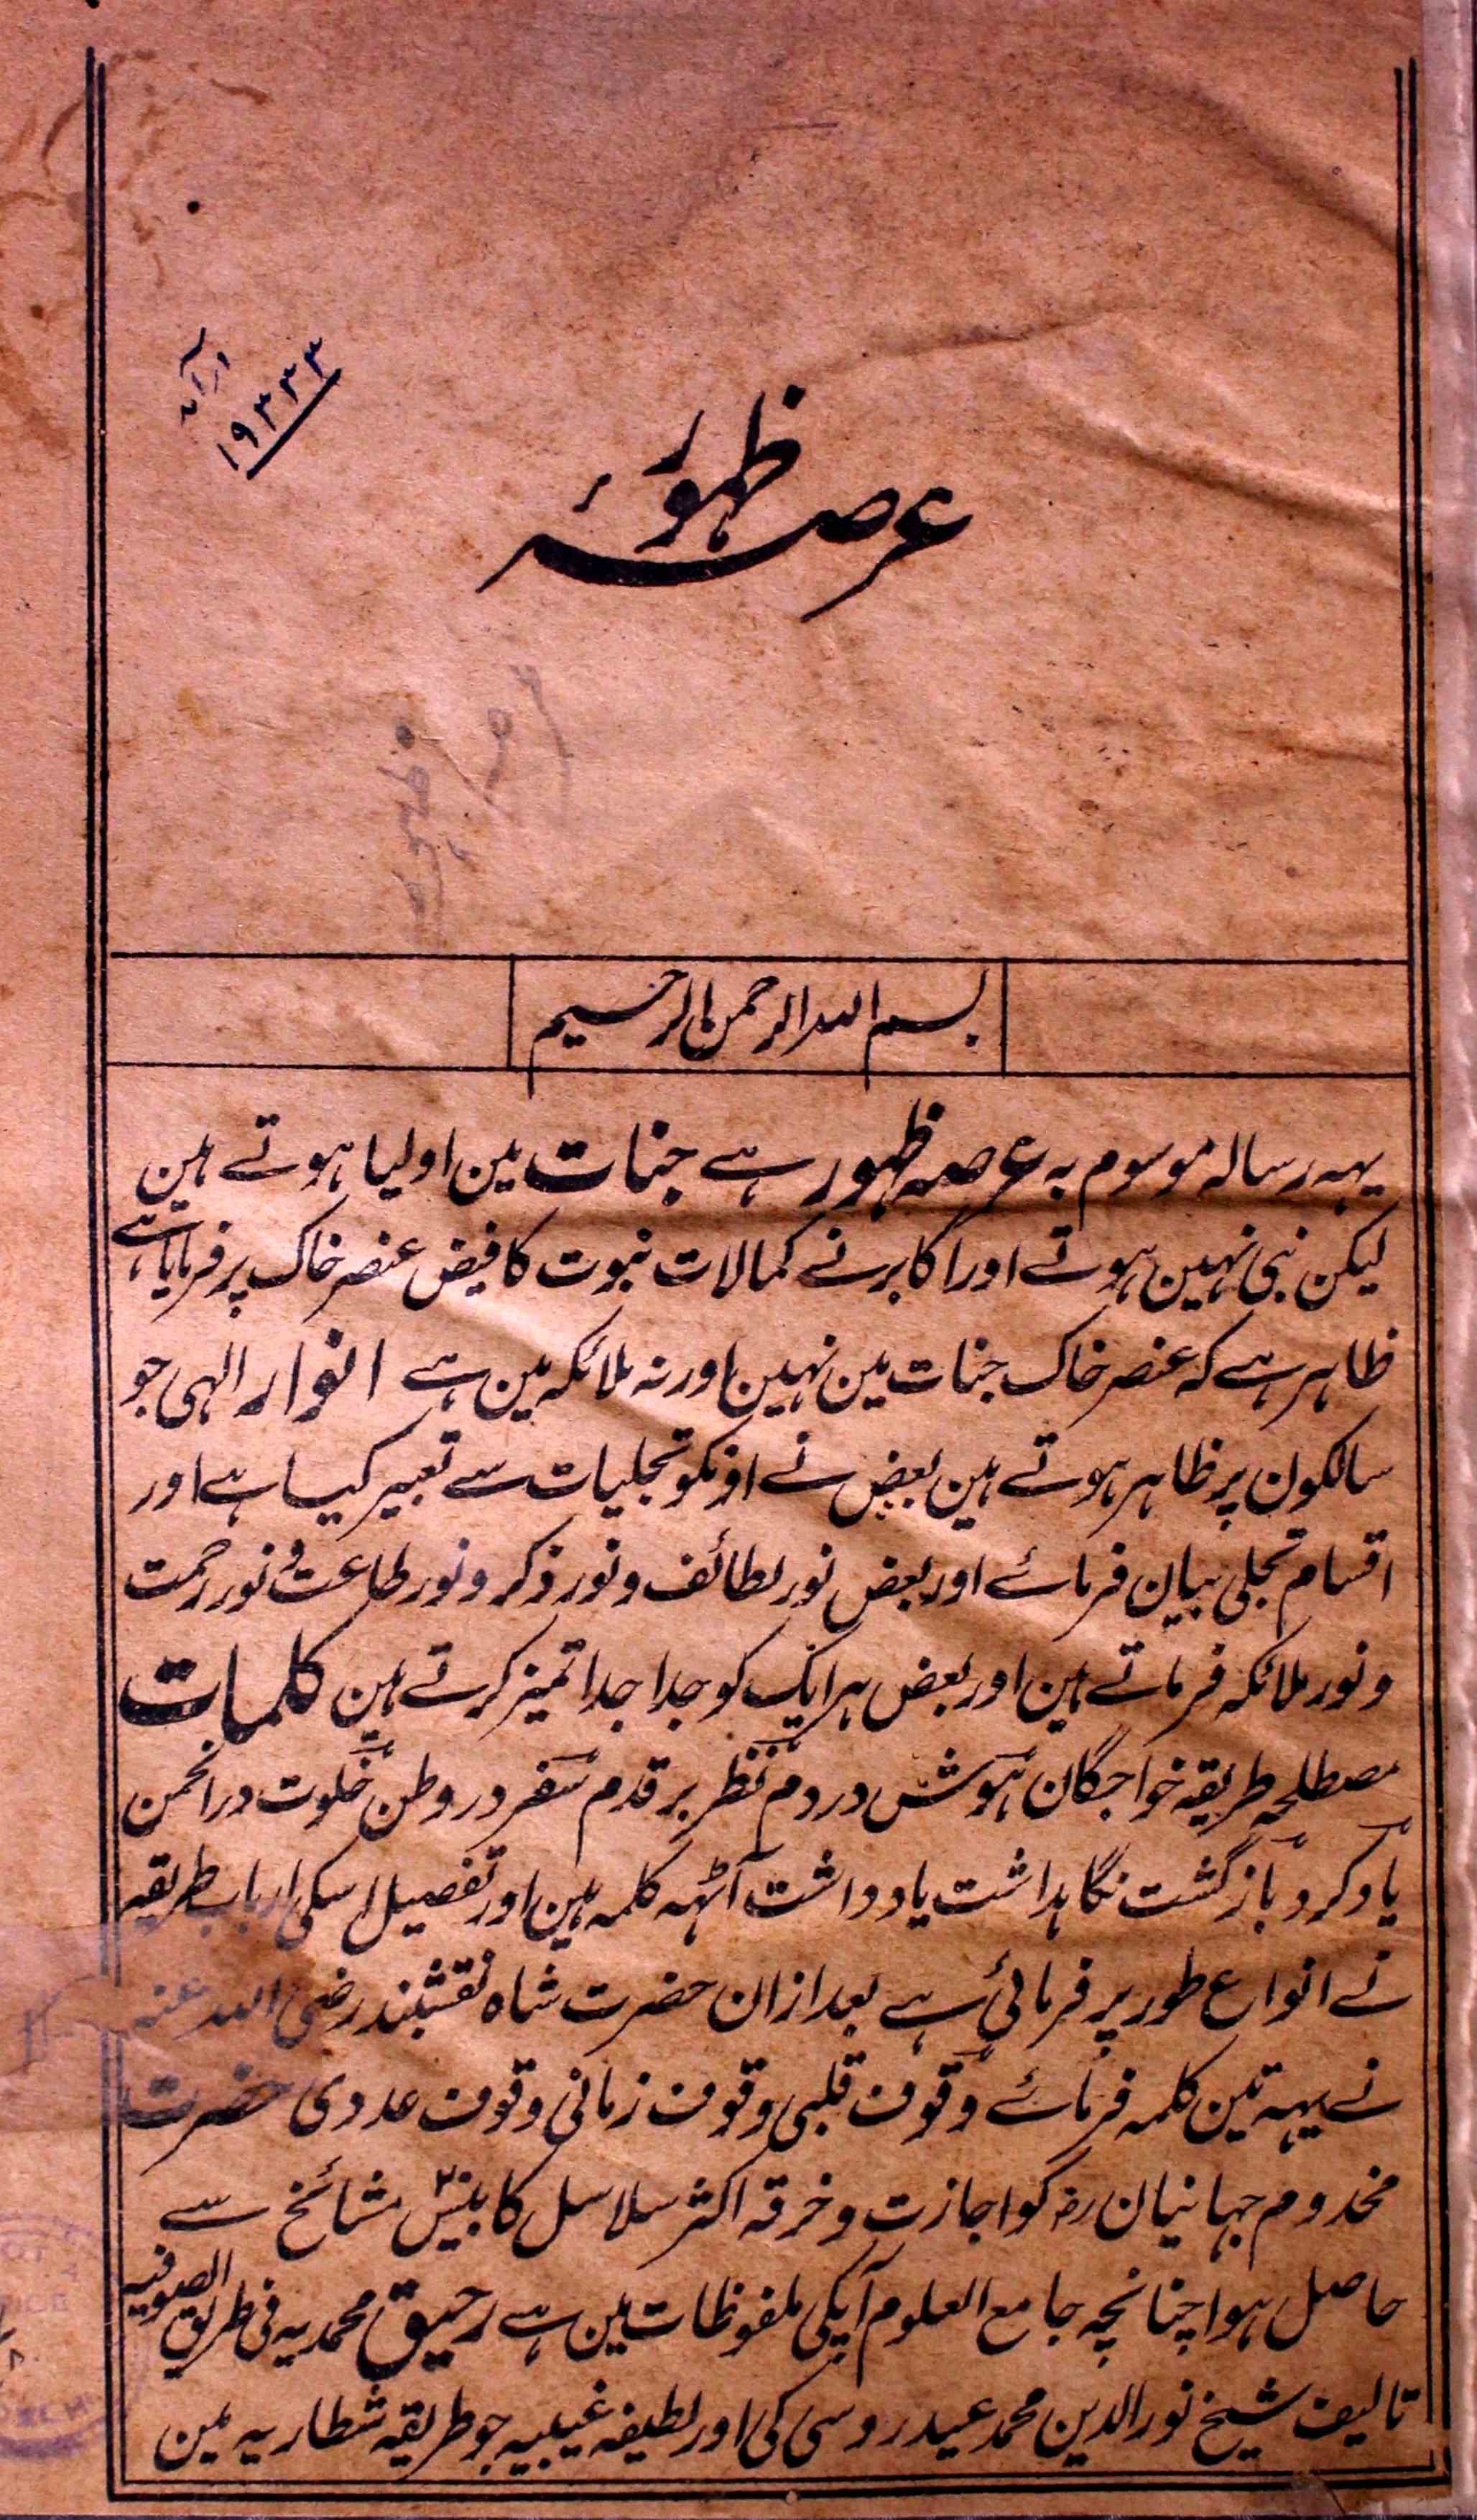 ۱۹۳۳۳
عرصہ ظہور
بسم اللہ الرحمن الرحیم
یہہ رسالہ موسوم بہ عرصہ ظہور ہے جنات مین اولیا ہوتے ہین
لیکن نبی نہین ہوتے اور اکابر نے کمالات نبوت کا فیض عنصر خاک پر فرمایا ہے
ظاہر ہے کہ عنصر خاک جنات مین نہین اور نہ ملائکہ مین ہے انوار الہی جو
سالکون پر ظاہر ہوتے ہین بعض نے اونکو تجلیات سے تعبیر کیا ہے اور
اقسام تجلی بیان فرمائے اور بعض نور لطائف و نور ذکر و نور طاعت و نور رحمت
و نور ملائکہ فرماتے ہین اور بعض ہر ایک کو جدا جدا تمیز کرتے ہین کلمات
مصطلحہ طریقہ خواجگان ہوش در دم نظر بر قدم سفر در وطن خلوت در انجمن
یاد کرد باز گشت نگاہداشت یادداشت آٹہہ کلمہ ہین اور تفصیل اسکی ارباب طریقہ
نے انواع طور پر فرمائی ہے بعد ازان حضرت شاہ نقشبند رضی اللہ عنہ
نے یہہ تین کلمہ فرمائے وقوف قلبی وقوف زمانی وقوف عددی حضرت
مخدوم جہانیان رح کو اجازت و خرقہ اکثر سلاسل کا مشائخ سے
حاصل ہوا چنانچہ جامع العلوم آپکی ملفوظات مین ہے رحیق محمدیہ فی طریق الصوفیہ
تالیف شیخ نور الدین محمد عیدروسی کی اور لطیفہ غیبیہ جو طریقہ شطاریہ مین